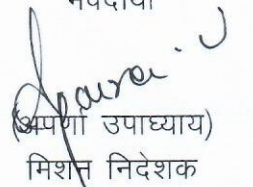 भवदीया
(अपर्णा उपाध्याय)
मिशन निदेशक